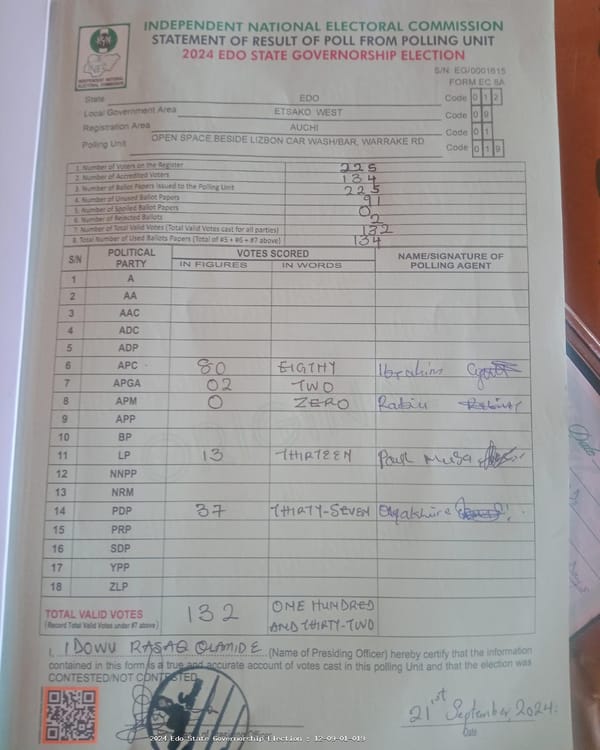 INDEPENDENT NATIONAL ELECTORAL COMMISSION
STATEMENT OF RESULT OF POLL FROM POLLING UNIT
2024 EDO STATE GOVERNORSHIP ELECTION
INDEPENDENT NATIONAL ELECTORAL COMMISSION
S/N: EG/0001615
FORM EC 8A
State EDO Code 0 1 2
Local Government Area ETSAKO WEST Code 0 9
Registration Area AUCHI Code 0 1
Polling Unit OPEN SPACE BESIDE LIZBON CAR WASH/BAR, WARRAKE RD Code 0 1 9
1. Number of Voters on the Register 225
2. Number of Accredited Voters 134
3. Number of Ballot Papers issued to the Polling Unit 225
4. Number of Unused Ballot Papers 91
5. Number of Spoiled Ballot Papers 0
6. Number of Rejected Ballots 2
7. Number of Total Valid Votes (Total Valid Votes cast for all parties) 132
8. Total Number of Used Ballots Papers (Total of #5 + #6 + #7 above) 134
S/N POLITICAL PARTY VOTES SCORED NAME/SIGNATURE OF POLLING AGENT
IN FIGURES IN WORDS
1 A
2 AA
3 AAC
4 ADC
5 ADP
6 APC 80 EIGTHY
7 APGA 02 TWO
8 APM 0 ZERO Rabiu
9 APP
10 BP
11 LP 13 THIRTEEN Paul Musa
12 NNPP
13 NRM
14 PDP 37 THIRTY-SEVEN
15 PRP
16 SDP
17 YPP
18 ZLP
TOTAL VALID VOTES 132 ONE HUNDRED
(Record Total Valid Votes under #7 above) AND THIRTY-TWO
I, IDOWU RASAQ OLAMIDE (Name of Presiding Officer) hereby certify that the information
contained in this form is a true and accurate account of votes cast in this polling Unit and that the election was
CONTESTED/NOT CONTESTED
21st September 2024.
Date
2024 Edo State Governorship Election : 12-09-01-019